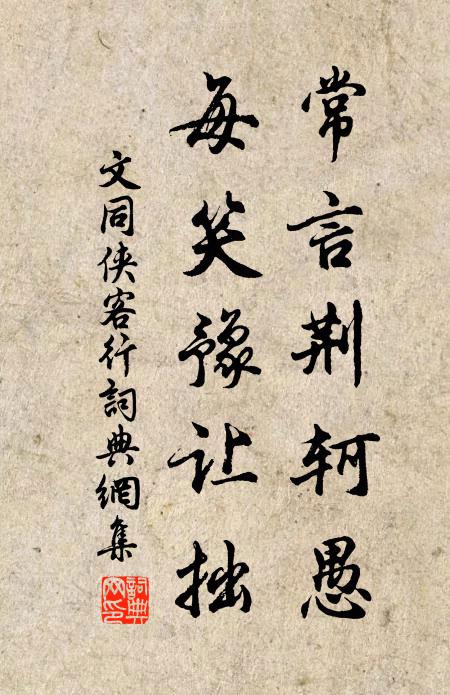 常言荆轲愚
每笑豫让拙
文同侠客行詞典網集
詞典
网印